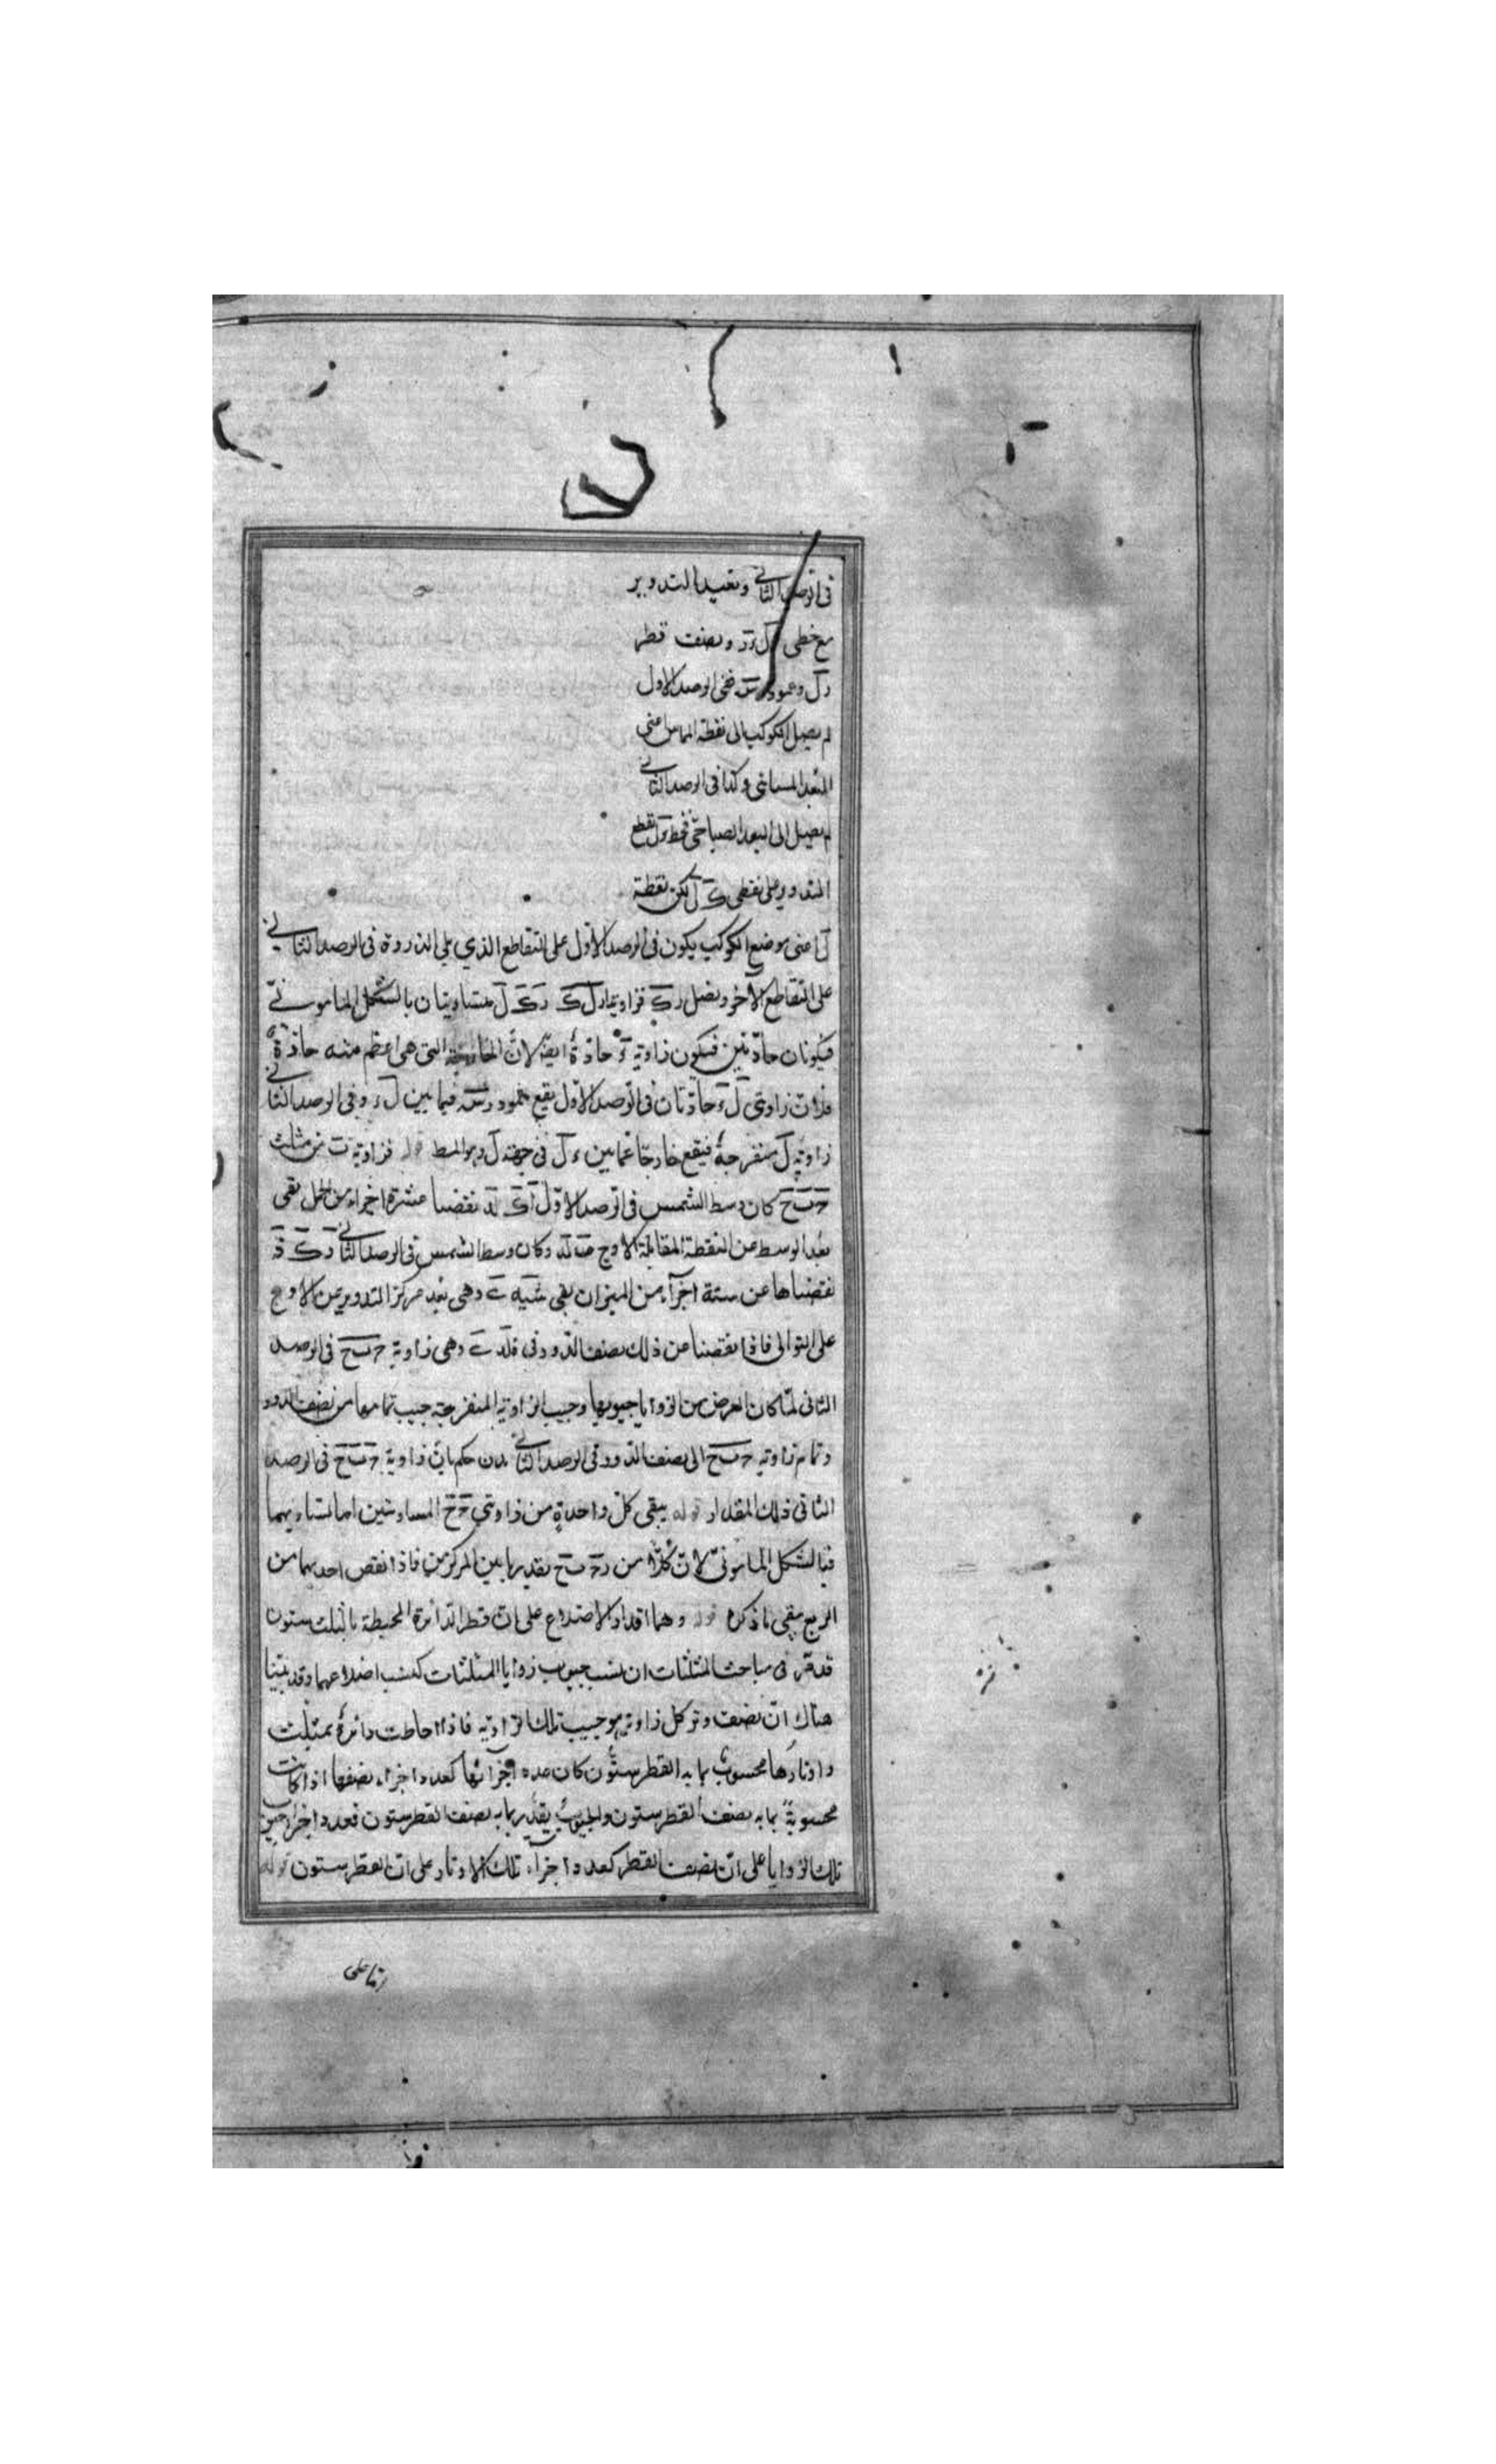 فى الرصد الثانى ونعيد التدوير
مع خطى ونصف قطر
رل وعمود رس ففى الرصد الاول
لم يصل الكوكب الى نقطة التماس اعنى
البعد المسائى وكذا فى الرصد الثانى
لم يصل الى البعد الصباحى فخط ءل يقطع
التدوير على نقطتى ك ل لكن نقطة
ل اعنى موضع الكوكب يكون فى الرصد الاول على التقاطع الذي يلى الذروة فى الرصد الثانى
على التقاطع الآخر ونصل رك فزاويتا رل ك رك ل متساويتان بالشكل المامونى
فيكونان حادتين فيكون زاوية ء حادة ايضا لان الخارجة التى هى اعظم منه حادة
فلان زاويتى ل ء حادتان فى الرصد الاول يقع عمود رس فيما بين ل ء وفى الرصد الثانى
زاوية ل منفرجة فيقع خارجا عما بين ءل فى جهة ل وهو المط قوله فزاوية ب من مثلث
ح ب ح كان وسط الشمس فى الرصد الاول نقضنا عشرة اجزاء من الحمل بقى
بعد الوسط عن النقطة المقابلة للاوج وكان وسط الشمس فى الرصد الثانى
نقصناها عن ستة اجزآء من الميزان بقى وهى بعد مركز التدوير عن الاوج
على التوالى فاذا نقصنا من ذلك نصف الدور بقى وهى زاوية ح ب ح فى الرصد
الثانى لما كان الغرض من الزوايا جيوبها وجيب الزاوية المنفرجة جيب تمامها من نصف الدور
وتمام زاوية ح ب ح الى نصف الدور فى الرصد الثانى حكم بان زاوية ح ب ح فى الرصد
الثانى ذلك المقدار قوله يبقى كل واحدة من زاويتى ح ح المتساويتين اما تساويهما
فبالشكل المامونى لان كلا من ب ح بقدر ما بين المركزين فاذا نقص احديهما من
الربع بقى ما ذكره قوله وهما اقدار الاضلاع على ان قطر الدائرة المحيطة بالمثلث ستون
قد مر فى مباحث المثلثات ان نسب جيوب زوايا المثلثات كنسب اضلاعها وقد بينا
هناك ان نصف وتر كل زاوية هو جيب تلك الزاوية فاذا احاطت دائرة بمثلث
واوتارها محسوب بما به القطر ستون كان عدد اجزآئها كعدد اجزاء نصفها اذا كانت
محسوبة بما به نصف القطر ستون والجيوب يقدر بما به نصف القطر ستون فعدد اجزاء جيوب
تلك الزوايا على ان نصف القطر كعدد اجزآء تلك الاوتار على ان القطر ستون قوله